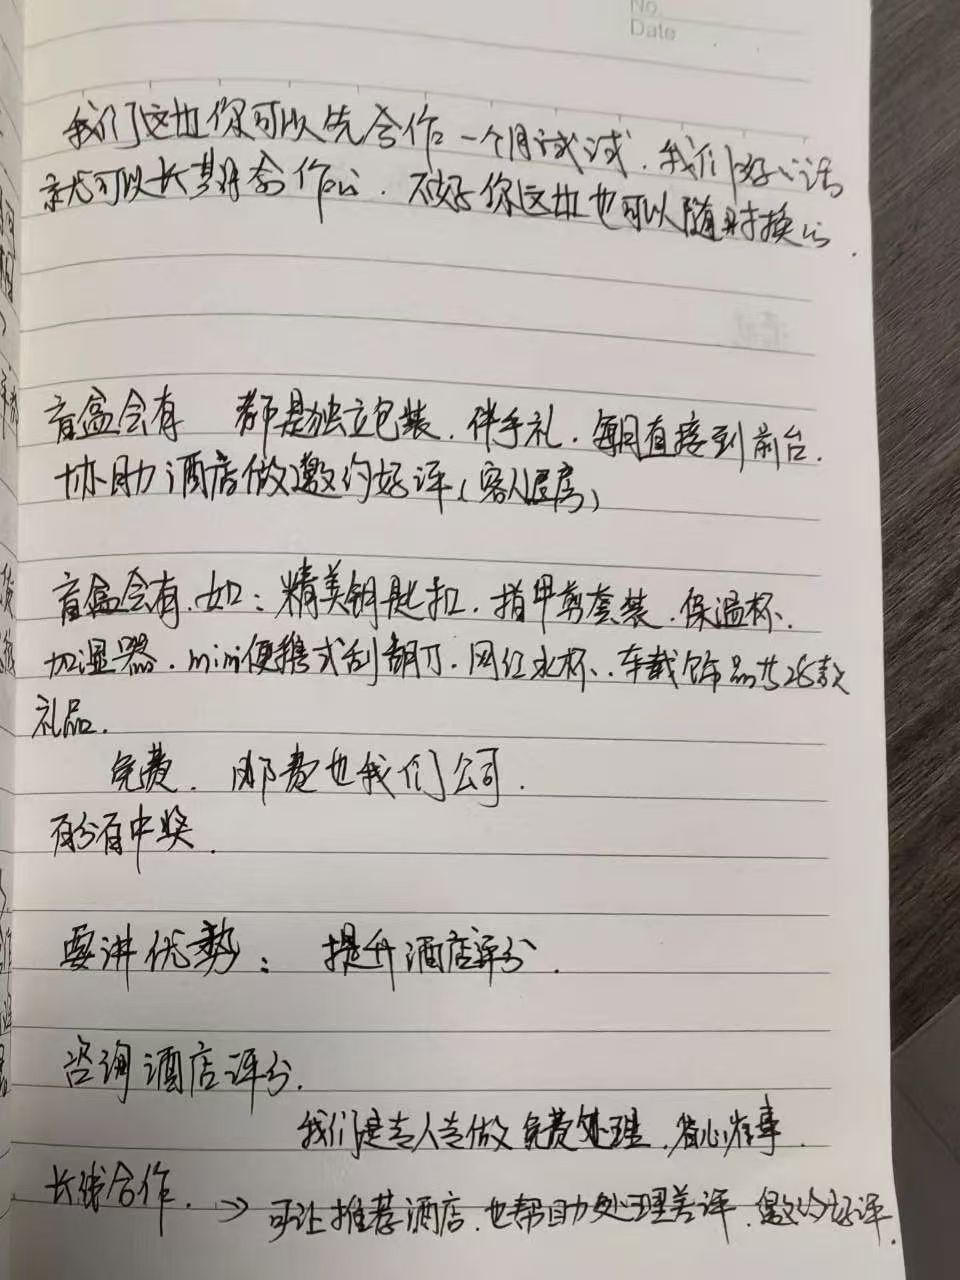 No.
Date
我们这边你可以先合作一个月试试.我们好心话
就可以长期合作心.不好你这边也可以随时换心.
盲盒会有 都是独立包装.伴手礼.每月直接到前台.
协助酒店做邀约好评(客人退房)
盲盒会有.如:精美钥匙扣.指甲剪套装.保温杯、
加湿器.mini便携式刮胡刀.网红水杯、.车载饰品共26款
礼品.
免费.邮费也我们公司.
百分百中奖.
要讲优势: 提升酒店评分.
咨询酒店评分.
我们是专人专做免费处理.省心省事.
长线合作.→可让推荐酒店.也帮助处理差评.邀约好评.